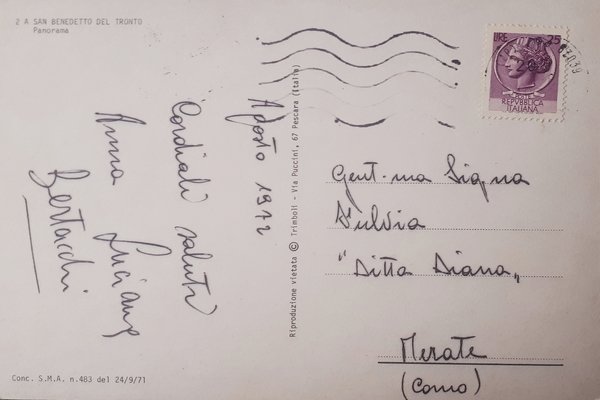 2 A SAN BENEDETTO DEL TRONTO
Panorama
Agosto 1972
Cordiali saluti
Anna Luciano
Bertacchi
Conc. S.M.A. n.483 del 24/9/71
Riproduzione vietata © Trimboli - Via Puccini, 67 Pescara (Italia)
LIRE 25
REPVBBLICA
ITALIANA
Gent.ma Sig.na
Fulvia
"Ditta Diana"
Merate
(Como)